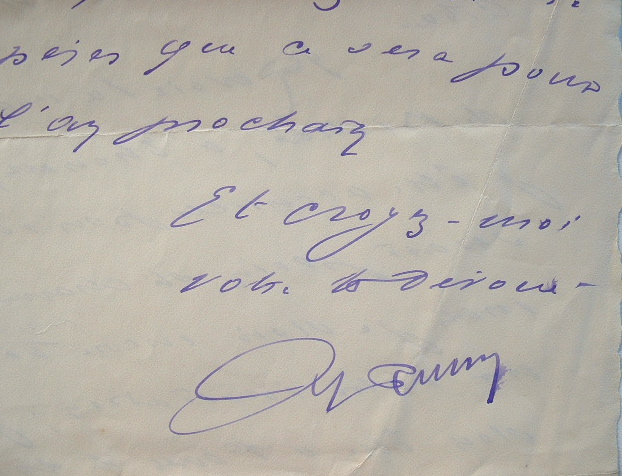 que ce sera pour
l'an prochain
Et croyez-moi
votre dévoué